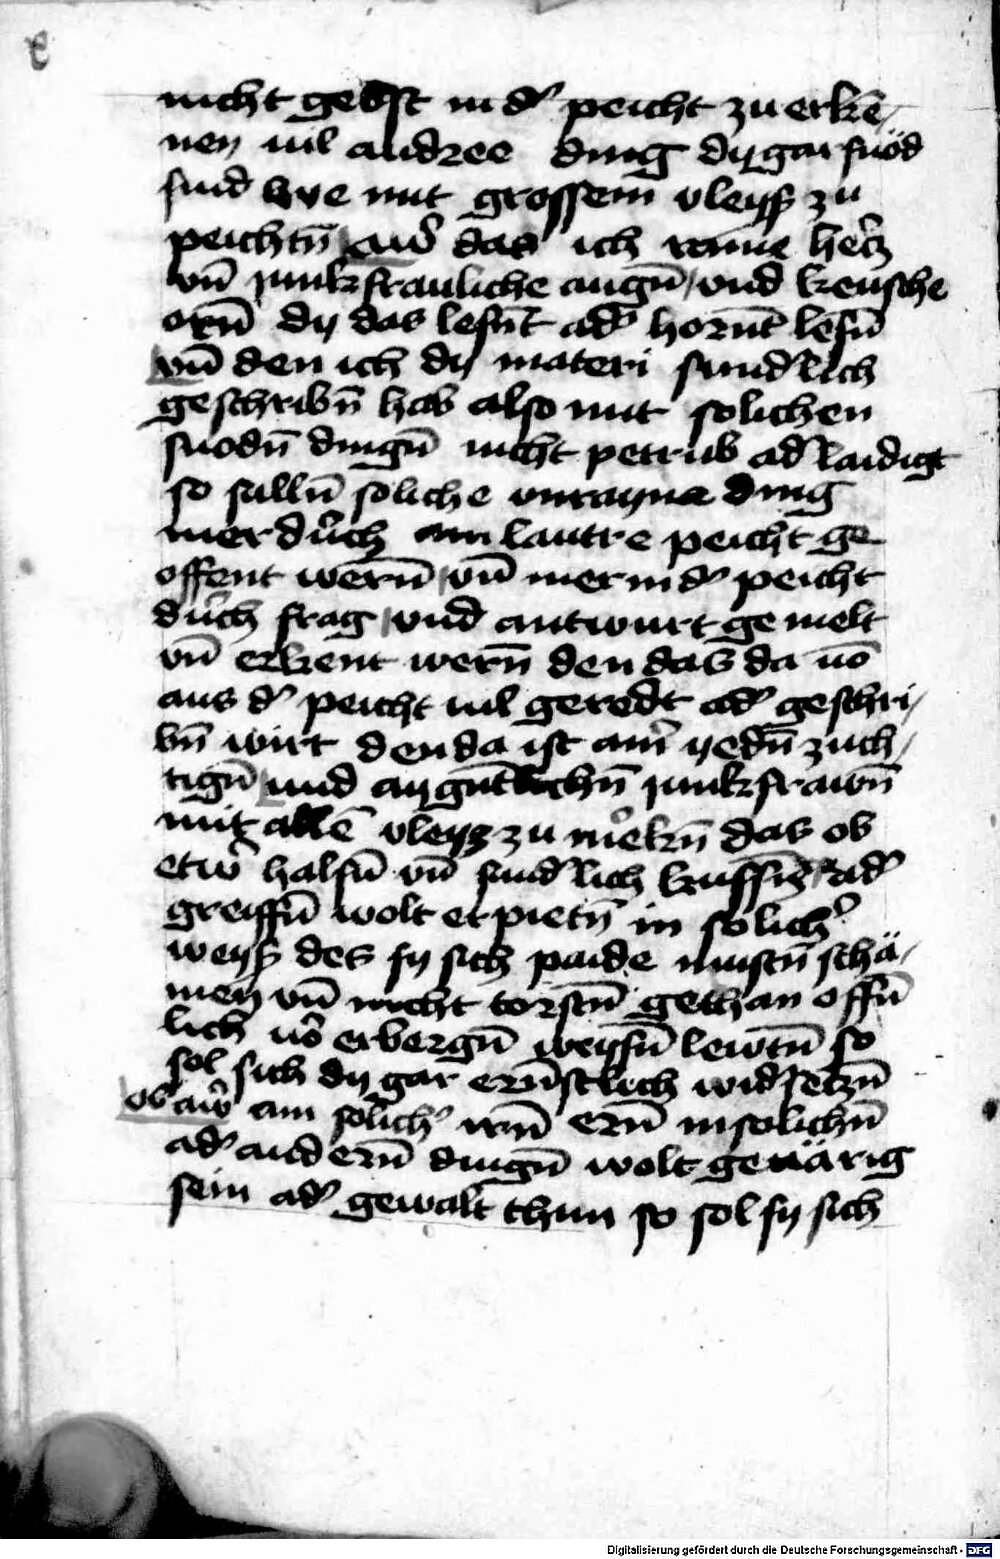 nicht gebst in d' peicht zu erkē-
nen vil andree ding dy gar snöd
sind we mit grossem vleyß zu
peichtn̄ aw̄ das ich raine hercz
vn̄ junkfrauliche augn̄ / vnd keusche
orn̄ dy das lesn̄t ad' hornt̄ lesn̄
vn̄ den ich dy materi sundlich
geschribn̄ hab also mit solichen
snodn̄ dingn̄ nicht petrub ad' laidigt
so sulln̄ soliche vnrayne ding
mer durch ain lautre peicht ge
offent wern̄ / vn̄ mer in d' peicht
durch frag / vnd antwurt gemelt
vn̄ erkent wern̄ den das da vō
aus d' peicht vil geredt ad' geschri-
bn̄ wirt den da ist ain' yedn̄ zuch-
tign̄ vnd aygn̄tlichn̄ junkfrawn̄
mit allē vleyß zu merkn̄ das ob
etw' halsn̄ vn̄ sundlich kussn̄ ad'
greiffn̄ wolt erpietn̄ in solich'
weyß des sy sich paide mustn̄ schä-
men vn̄ nicht torstn̄ gethan offn̄
lich vō erbergn̄ weysn̄ lewtn̄ so
sol sich dy gar ern̄stlich wid'seczn̄
ob aw' ain solich' irn̄ ern̄ in solichn̄
ad' andern̄ dingn̄ wolt geuärig
sein ad' gewalt thun so sol sy sich
Digitalisierung gefördert durch die Deutsche Forschungsgemeinschaft - DFG